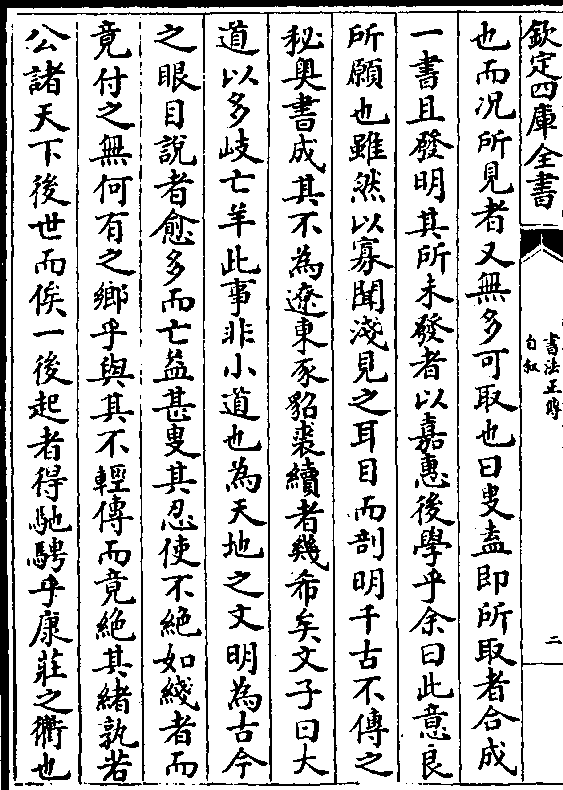 欽定四庫全書
書法正傳
自叙
二
也而况所見者又無多可取也曰叟盍即所取者合成
一書且發明其所未發者以嘉惠後學乎余曰此意良
所願也雖然以寡聞淺見之耳目而剖明千古不傳之
秘奥書成其不為遼東豕貂裘續者幾希矣文子曰大
道以多岐亡羊此事非小道也為天地之文明為古今
之眼目說者愈多而亡益甚叟其忍使不絶如綫者而
竟付之無何有之鄉乎與其不輕傳而竟絶其緒孰若
公諸天下後世而俟一後起者得馳騁乎康莊之衢也